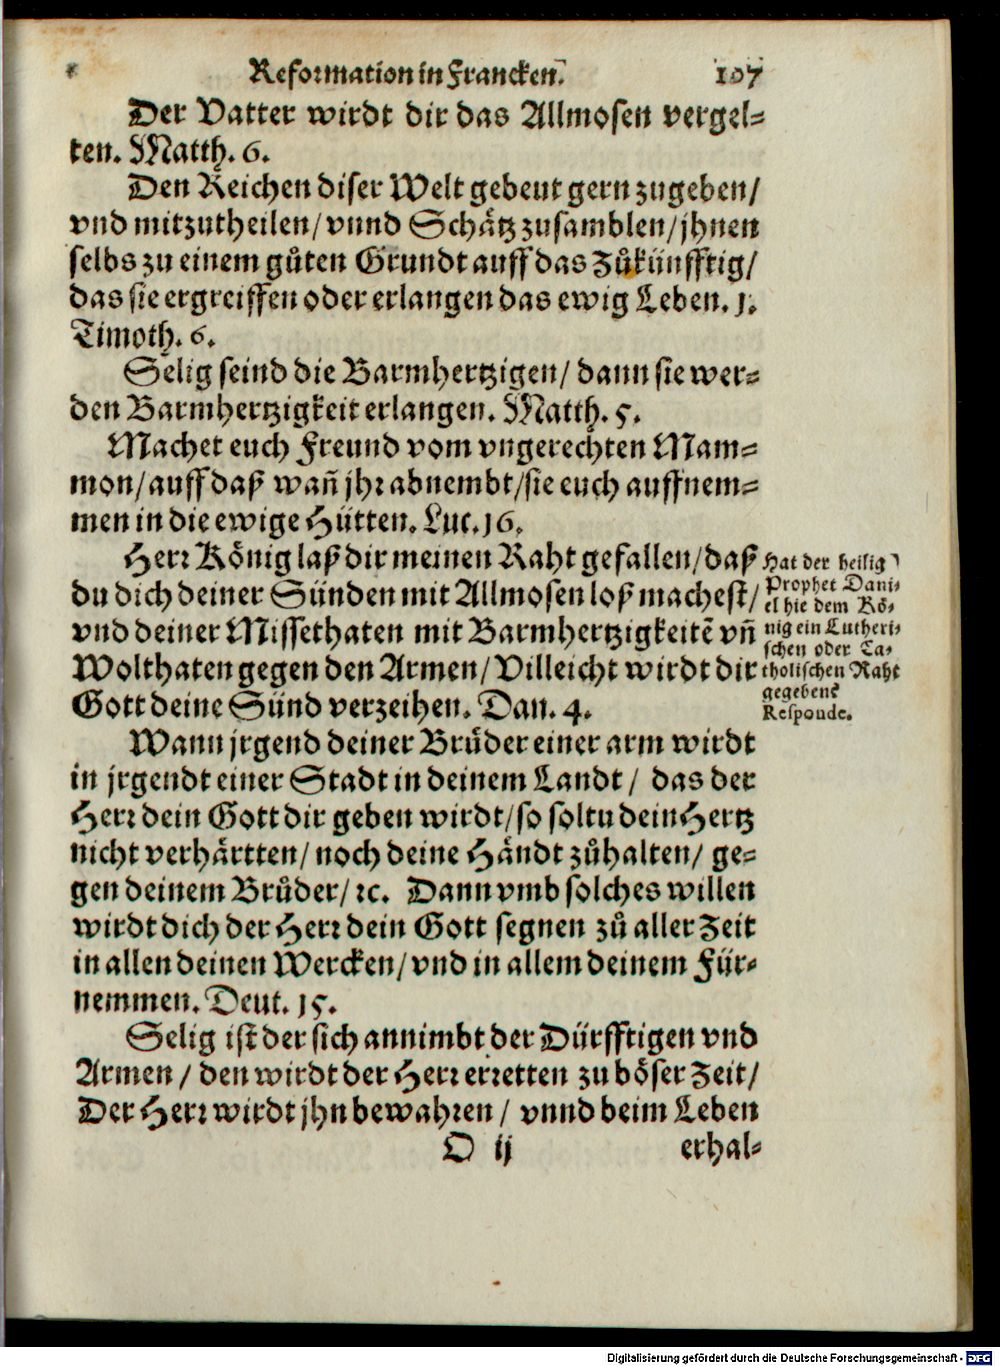 Reformation in Francken. 107
Der Vatter wirdt dir das Allmosen vergel⸗
ten. Matth. 6.
Den Reichen diser Welt gebeut gern zugeben/
vnd mitzutheilen/ vnnd Schaͤtz zusamblen/ jhnen
selbs zu einem guͦten Grundt auff das Zuͦkünfftig/
das sie ergreiffen oder erlangen das ewig Leben. 1.
Timoth. 6.
Selig seind die Barmhertzigen/ dann sie wer⸗
den Barmhertzigkeit erlangen. Matth. 5.
Machet euch Freund vom vngerechten Mam⸗
mon/ auff daß wañ jhr abnembt/ sie euch auffnem⸗
men in die ewige Hütten. Luc. 16.
Herr Koͤnig laß dir meinen Raht gefallen/ daß
du dich deiner Sünden mit Allmosen loß machest/
vnd deiner Missethaten mit Barmhertzigkeitẽ vñ
Wolthaten gegen den Armen/ Villeicht wirdt dir
Gott deine Sünd verzeihen. Dan. 4.
Hat der heilig
Prophet Dani⸗
el hie dem Koͤ⸗
nig ein Lutheri⸗
schen oder Ca⸗
tholischen Raht
gegeben?
Responde.
Wann jrgend deiner Bruͤder einer arm wirdt
in jrgendt einer Stadt in deinem Landt/ das der
Herr dein Gott dir geben wirdt/ so soltu dein Hertz
nicht verhaͤrtten/ noch deine Haͤndt zuͦhalten/ ge⸗
gen deinem Bruͦder/ ꝛc. Dann vmb solches willen
wirdt dich der Herr dein Gott segnen zuͦ aller Zeit
in allen deinen Wercken/ vnd in allem deinem Für⸗
nemmen. Deut. 15.
Selig ist der sich annimbt der Dürfftigen vnd
Armen/ den wirdt der Herr erretten zu boͤser Zeit/
Der Herr wirdt jhn bewahren/ vnnd beim Leben
O ij erhal⸗
Digitalisierung gefördert durch die Deutsche Forschungsgemeinschaft - DFG